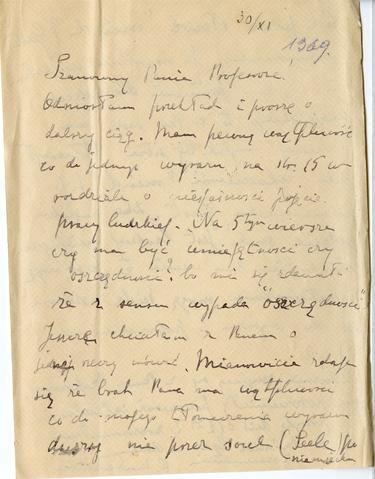 30/XI
1909.
Szanowny Panie Profesorze!
Odniosłam przekład i proszę o
dalszy ciąg. Mam pewną wątpliwość
co do jednego wyrazu, na str. 15 w
rozdziale o
pracy ludzkiej. Na 5tym wierszu
czy ma być umiejętności czy
oszczędności? bo mi się zdawało
że z sensu wypada "oszczędności"
Jeszcze chciałam z Panem o
jednej rzeczy mówić. Mianowicie zdaje
się że brak Pana ma wątpliwości
co do mojego tłomaczenia wyrazu
duszy nie przez soul (Seele) po
niemiecku